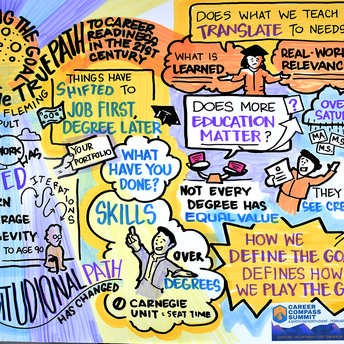 NG THE GOAL
TRUE PATH
TO CAREER
READINESS
IN THE 21ST
CENTURY!
FLEMING
PULT
WORK HAS
ED
ITERATIONS
RN
ERAGE
GEVITY
TO AGE 90
ITUDIONAL PATH
HAS CHANGED
THINGS HAVE
SHIFTED TO
JOB FIRST,
DEGREE LATER
YOUR
PORTFOLIO
WHAT
HAVE YOU
DONE?
SKILLS
OVER
DEGREES
CARNEGIE
UNIT: SEAT TIME
DOES WHAT WE TEACH
TRANSLATE TO NEEDS
WHAT IS
LEARNED
REAL-WORL
RELEVANCE
DOES MORE
EDUCATION
MATTER?
?
OVER
SATU
MA
M.S.
M.S.
NOT EVERY
DEGREE HAS
EQUAL VALUE
THEY
SEE CRE
HOW WE
DEFINE THE GOA
DEFINES HOW
WE PLAY THE G
CAREER
COMPASS
SUMMIT